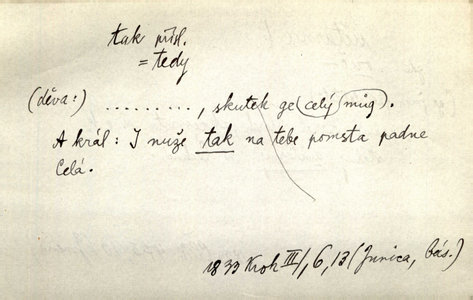 tak přísl.
= tedy
(děva:) ........., skutek ge celý můg.
A král: I nuže tak na tebe pomsta padne
celá.
1833 Krok III/1, 6, 13 (Junica, bás.)